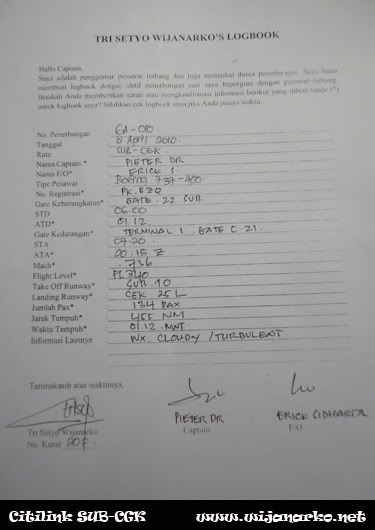 TRI SETYO WIJANARKO'S LOGBOOK
Hallo Captain,
Saya adalah penggemar pesawat terbang dan juga menyukai dunia penerbangan. Saya biasa
membuat logbook dengan detil penerbangan saat saya bepergian dengan pesawat terbang.
Bisakah Anda memberikan saran atau mengkonfirmasi informasi berikut yang diberi tanda (*)
untuk logbook saya? Silahkan cek logbook saya jika Anda punya waktu.
No. Penerbangan GA-010
Tanggal 8 April 2010
Rute SUB-CGK
Nama Captain * PIETER DR
Nama F/O* ERICK S.
Tipe Pesawat BOEING 737-400
No. Registrasi* PK.
Gate Keberangkatan* GATE 22 SUB
STD 06.00
ATD* 01.12
Gate Kedatangan* TERMINAL 1 GATE C.21
STA 07.20
ATA* 00.15 Z
Mach* .736
Flight Level* FL340
Take Off Runway* SUB 10
Landing Runway* CGK 25 L
Jumlah Pax* 134 PAX
Jarak Tempuh* 455 NM
Waktu Tempuh* 01.12 MNT
Informasi Lainnya WX. CLOUDY / TURBULENT
Terimakasih atas waktunya,
Tri Setyo Wijanarko
No. Kursi: 20F
PIETER DR
Captain
ERICK SIDHARTA
F/O
Citilink SUB-CGK www.wijanarko.net